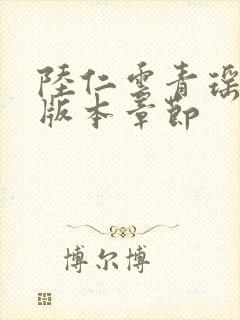 陸仁雲青瑶
版本章節
博尔博